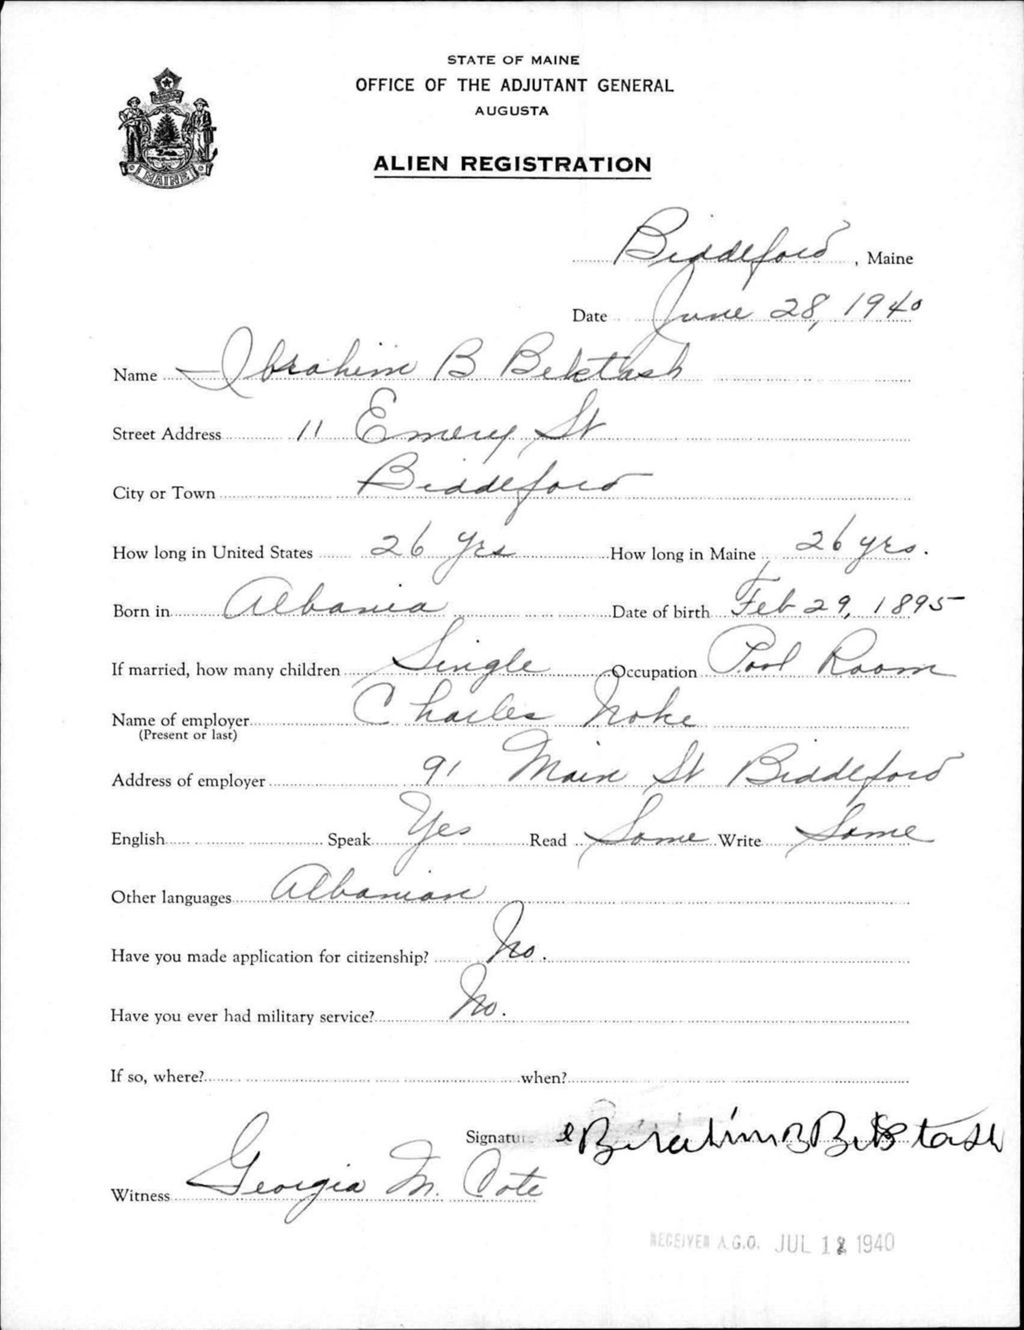 STATE OF MAINE
OFFICE OF THE ADJUTANT GENERAL
AUGUSTA
ALIEN REGISTRATION
MAINE
Biddeford, Maine
Date June 28, 1940
Name Ibrahim B Bektash
Street Address 11 Emery St
City or Town Biddeford
How long in United States 26 yrs How long in Maine 26 yrs.
Born in Albania Date of birth Feb 29, 1895
If married, how many children Single Occupation Pool Room
Name of employer Charles Noke
(Present or last)
Address of employer 91 Main St Biddeford
English Speak Yes Read Some Write Some
Other languages Albanian
Have you made application for citizenship? No.
Have you ever had military service? No.
If so, where? when?
Signature
Witness Georgia M. Cote
RECEIVED A.G.O. JUL 12 1940